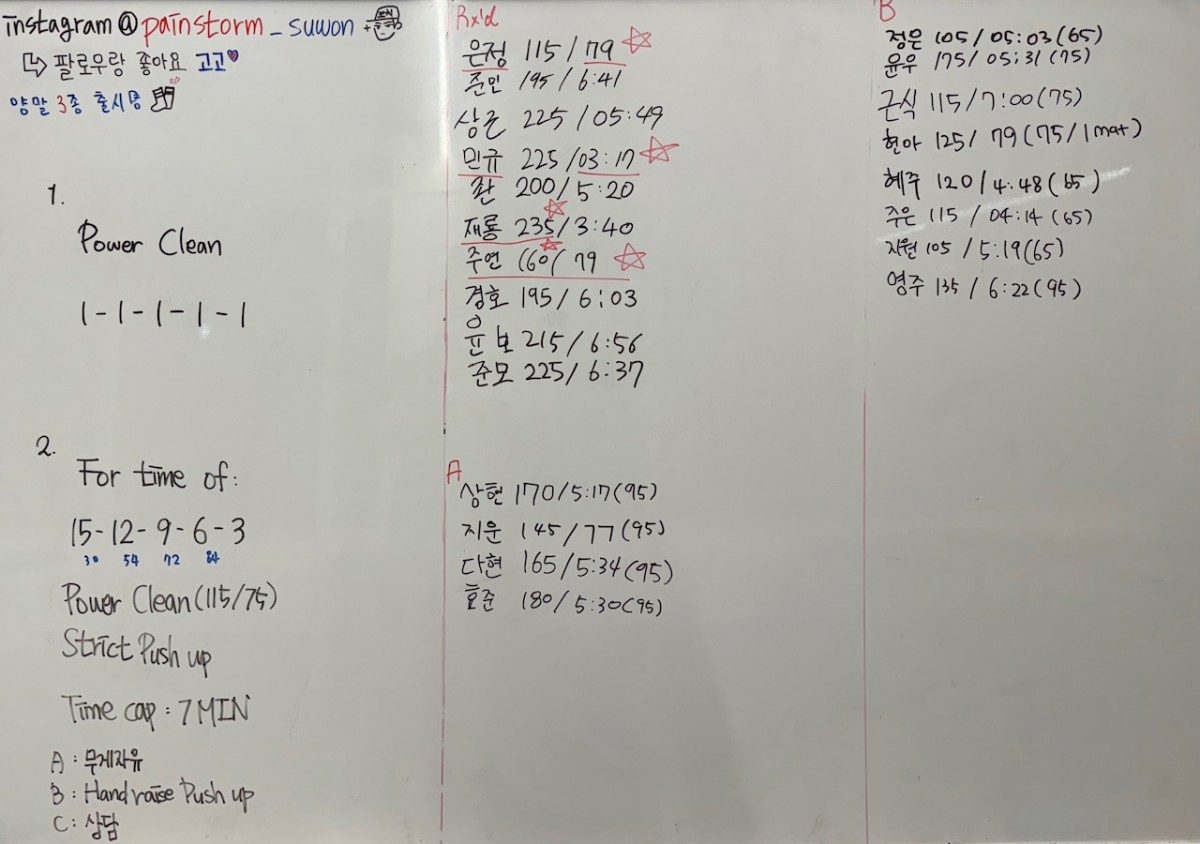 instagram@painstorm_suwon
↳ 팔로우랑 좋아요 고고♥
양말 3종 출시중
1.
Power Clean
1-1-1-1-1
2.
For time of:
15-12-9-6-3
30 54 72 84
Power Clean (115/75)
Strict Push up
Time cap : 7 MIN
A : 무게자유
B : Hand raise Push up
C : 상담
Rx'd
은정 115 / 79 ☆
준민 195 / 6:41
상근 225 / 05:49
민규 225 / 03:17 ☆
환 200 / 5:20
재룡 235 / 3:40
주연 160 / 79 ☆
경호 195 / 6:03
윤보 215 / 6:56
준모 225 / 6:37
A
상현 170 / 5:17 (95)
지운 145 / 77 (95)
다현 165 / 5:34 (95)
호준 180 / 5:30 (95)
B
정은 105 / 05:03 (65)
윤우 175 / 05:31 (75)
근식 115 / 7:00 (75)
현아 125 / 79 (75 / 1mat)
혜주 120 / 4:48 (65)
주은 115 / 04:14 (65)
지원 105 / 5:19 (65)
영주 135 / 6:22 (95)